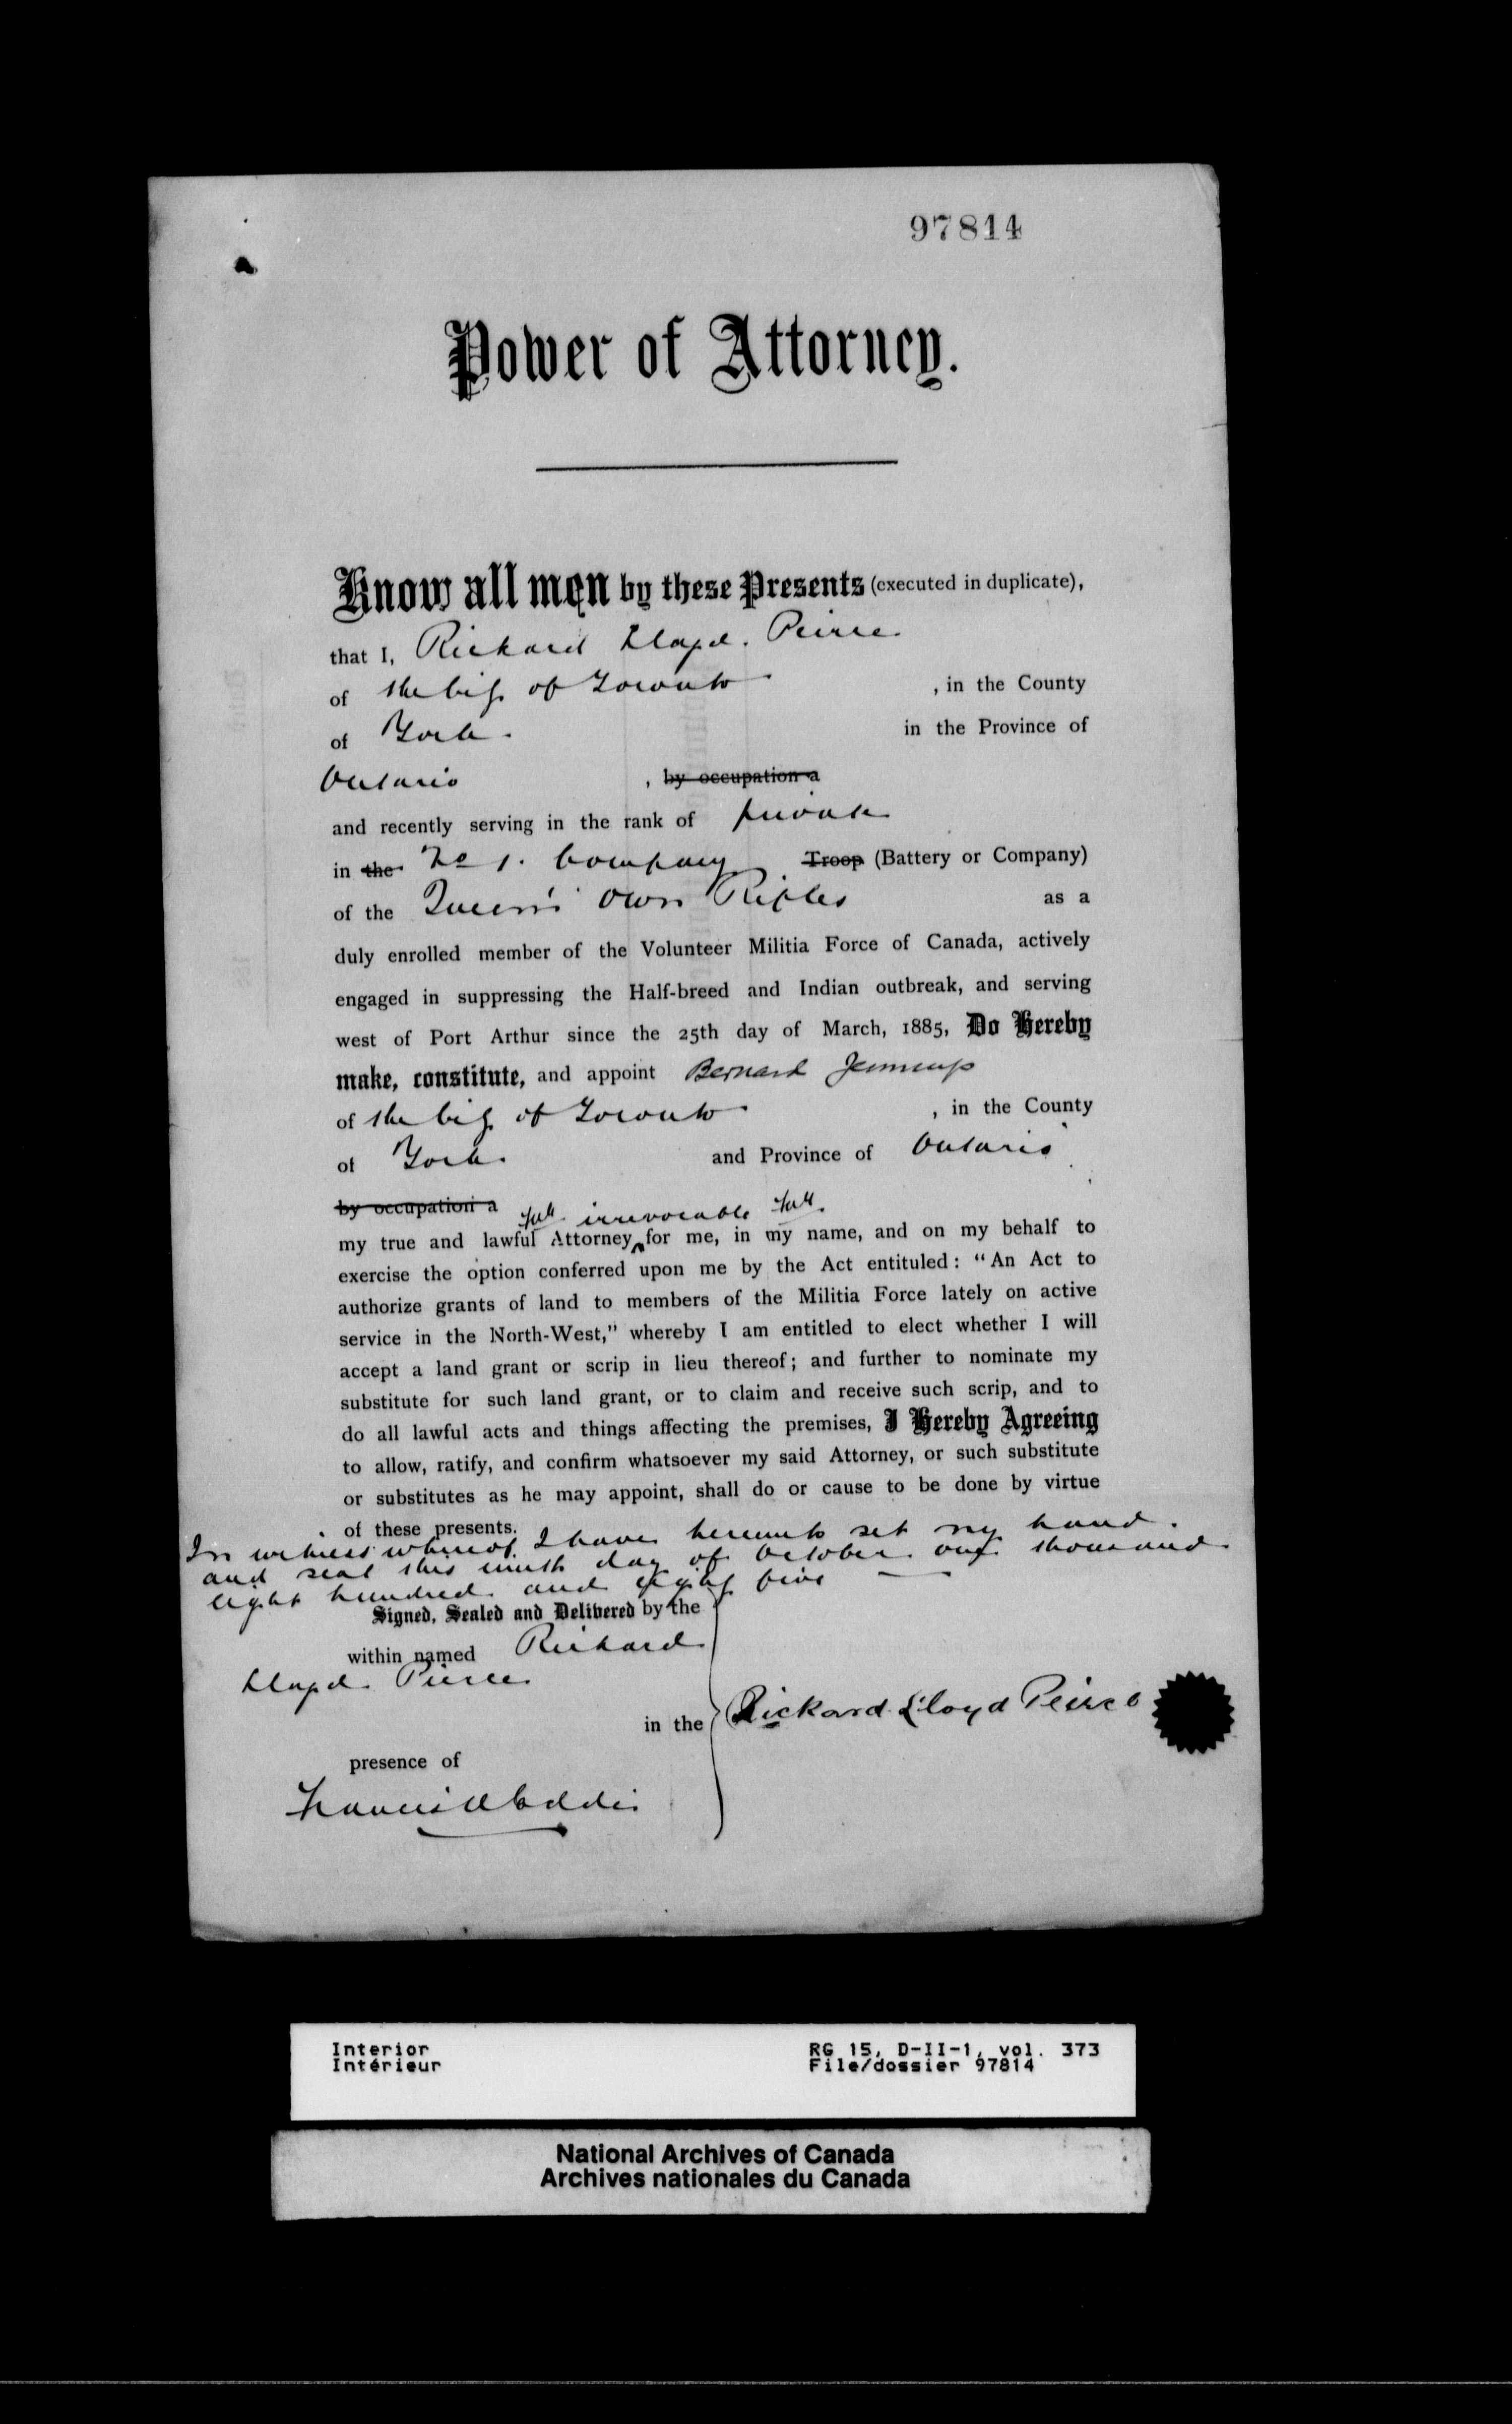 97814
Power of Attorney.
Know all men by these Presents (executed in duplicate),
that I, Richard Lloyd Peirce
of the City of Toronto , in the County
of York. in the Province of
Ontario , by occupation a
and recently serving in the rank of private
in the No 1. Company Troop (Battery or Company)
of the Queen's Own Rifles as a
duly enrolled member of the Volunteer Militia Force of Canada, actively
engaged in suppressing the Half-breed and Indian outbreak, and serving
west of Port Arthur since the 25th day of March, 1885, Do Hereby
make, constitute, and appoint Bernard Jennings
of the City of Toronto , in the County
of York. and Province of Ontario
by occupation a irrevocable
my true and lawful Attorney for me, in my name, and on my behalf to
exercise the option conferred upon me by the Act entituled: "An Act to
authorize grants of land to members of the Militia Force lately on active
service in the North-West," whereby I am entitled to elect whether I will
accept a land grant or scrip in lieu thereof; and further to nominate my
substitute for such land grant, or to claim and receive such scrip, and to
do all lawful acts and things affecting the premises, I Hereby Agreeing
to allow, ratify, and confirm whatsoever my said Attorney, or such substitute
or substitutes as he may appoint, shall do or cause to be done by virtue
of these presents.
In witness whereof I have hereunto set my hand.
and seal this ninth day of October one thousand
eight hundred and eighty five
Signed, Sealed and Delivered by the
within named Richard
Lloyd Pierce
in the
Rickard Lloyd Peirce
presence of
Interior
Intérieur
RG 15, D-II-1, vol. 373
File/dossier 97814
National Archives of Canada
Archives nationales du Canada